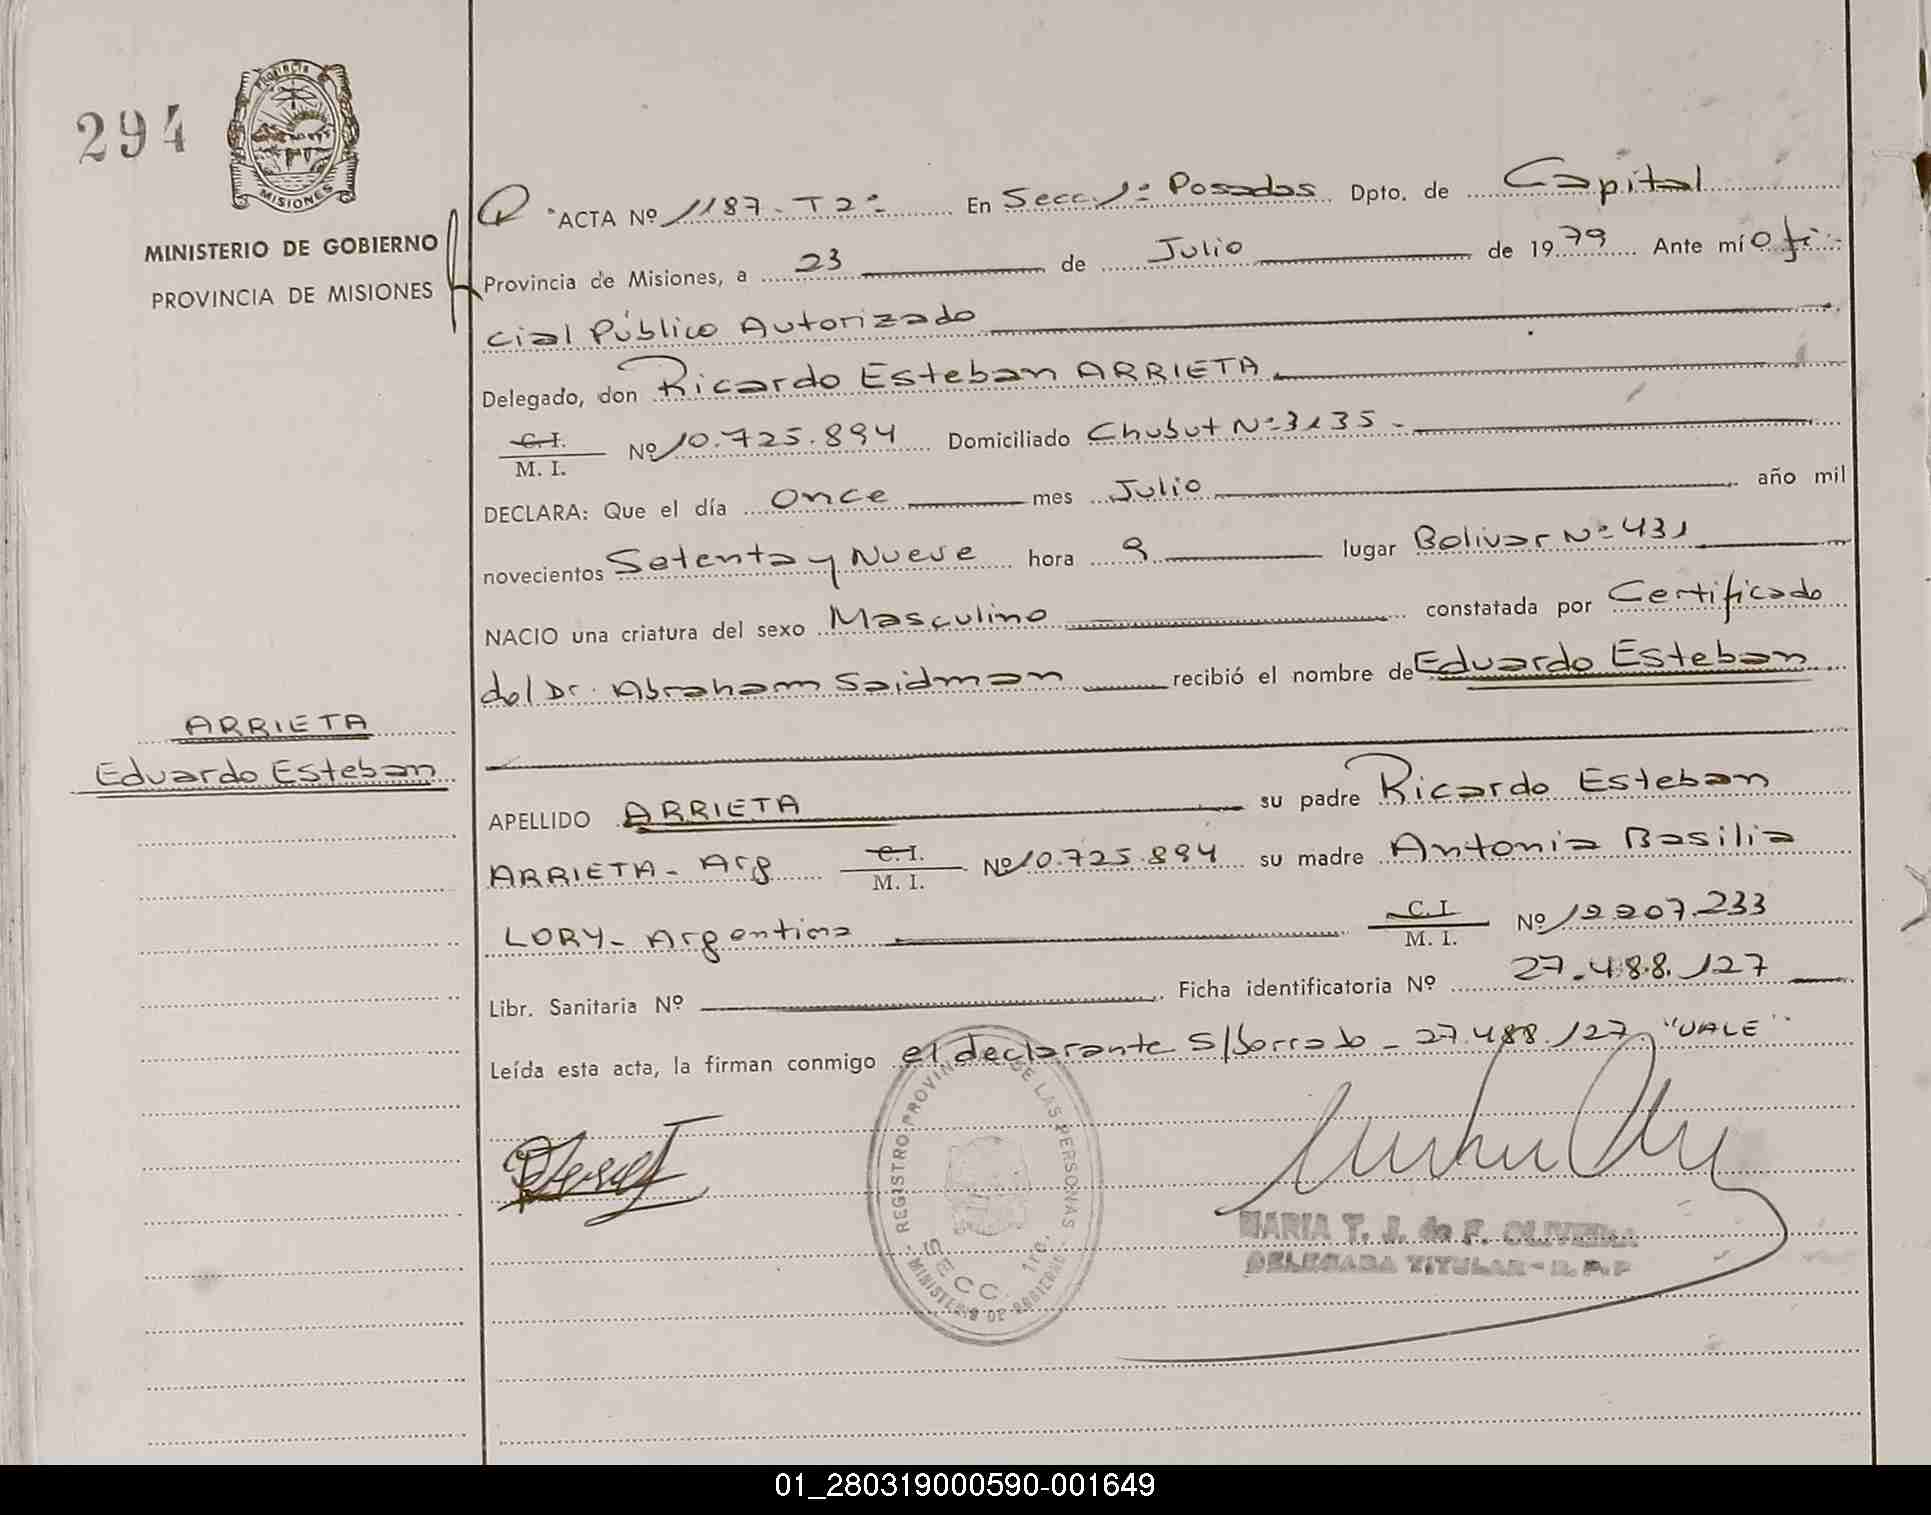 294
PROVINCIA
MISIONES
MINISTERIO DE GOBIERNO
PROVINCIA DE MISIONES
ACTA Nº 1187 - T 2º - En Secc. 1º Posadas Dpto. de Capital
Provincia de Misiones, a 23 de Julio de 1979 Ante mí Ofi-
cial Público Autorizado
Delegado, don Ricardo Esteban ARRIETA
C. I.
M. I. Nº 10.725.894 Domiciliado Chubut Nº 3135 -
DECLARA: Que el día once mes Julio año mil
novecientos Setenta y Nueve hora 9 lugar Bolivar Nº 431
NACIO una criatura del sexo Masculino constatada por Certificado
del Dr. Abraham Saidman recibió el nombre de Eduardo Esteban
ARRIETA
Eduardo Esteban
APELLIDO ARRIETA su padre Ricardo Esteban
ARRIETA - Arg C. I.
M. I. Nº 10.725.894 su madre Antonia Basilia
LORY - Argentina C. I.
M. I. Nº 12.207.233
Libr. Sanitaria Nº Ficha identificatoria Nº 27.488.127
Leída esta acta, la firman conmigo el declarante S/borrado - 27.488.127 "VALE"
REGISTRO PROVINCIAL DE LAS PERSONAS
SECC. 1ra.
MINISTERIO DE GOBIERNO
MARIA T. J. de F. OLIVEIRA
DELEGADA TITULAR - R. P. P
01_280319000590-001649